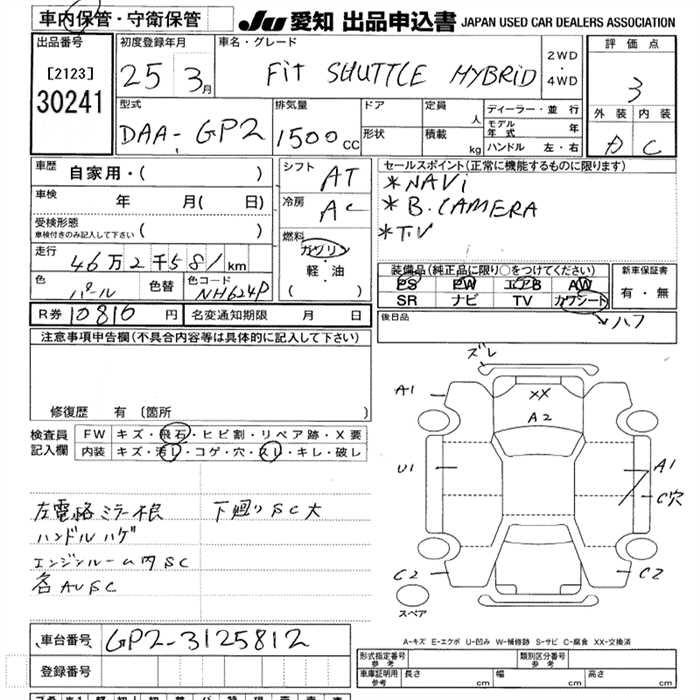 車内保管・守衛保管
JU 愛知 出品申込書 JAPAN USED CAR DEALERS ASSOCIATION
出品番号
[2123]
30241
初度登録年月
25 3月
車名・グレード
Fit SHUTTLE HYBRID
2WD
・
4WD
評価点
3
外装 内装
D C
型式
DAA-GP2
排気量
1500cc
ドア
形状
定員
人
積載
kg
ディーラー・並行
モデル年式
年
ハンドル 左・右
車歴
自家用・( )
車検
年 月( 日)
受検形態
車検付きのみ記入して下さい ( )
走行
46万2千581km
色
パール
色替
色コード
NH624P
R券 10810円
名変通知期限 月 日
シフト
AT
冷房
AC
燃料
ガソリン
・
軽・油
( )
セールスポイント(正常に機能するものに限ります)
*NAVi
*B.CAMERA
*TV
装備品(純正品に限り○をつけてください)
PS PW エアB AW
SR ナビ TV カワシート
新車保証書
有・無
後日品
→ハフ
注意事項申告欄(不具合内容等は具体的に記入して下さい)
修復歴 有 〔箇所 〕
検査員記入欄
FW キズ・飛石・ヒビ割・リペア跡・X要
内装 キズ・汚レ・コゲ・穴・スレ・キレ・破レ
左電格ミラー根 下廻りSC大
ハンドルハゲ
エンジンルーム内SC
各AVSC
ズレ
A1
XX
A2
U1
A1
C穴
C2
C2
スペア
A-キズ E-エクボ U-凹み W-補修跡 S-サビ C-腐食 XX-交換済
車台番号 GP2-3125812
登録番号
形式指定番号
参考
類別区分番号
参考
車庫証明用
参考
長さ cm
幅 cm
高さ cm